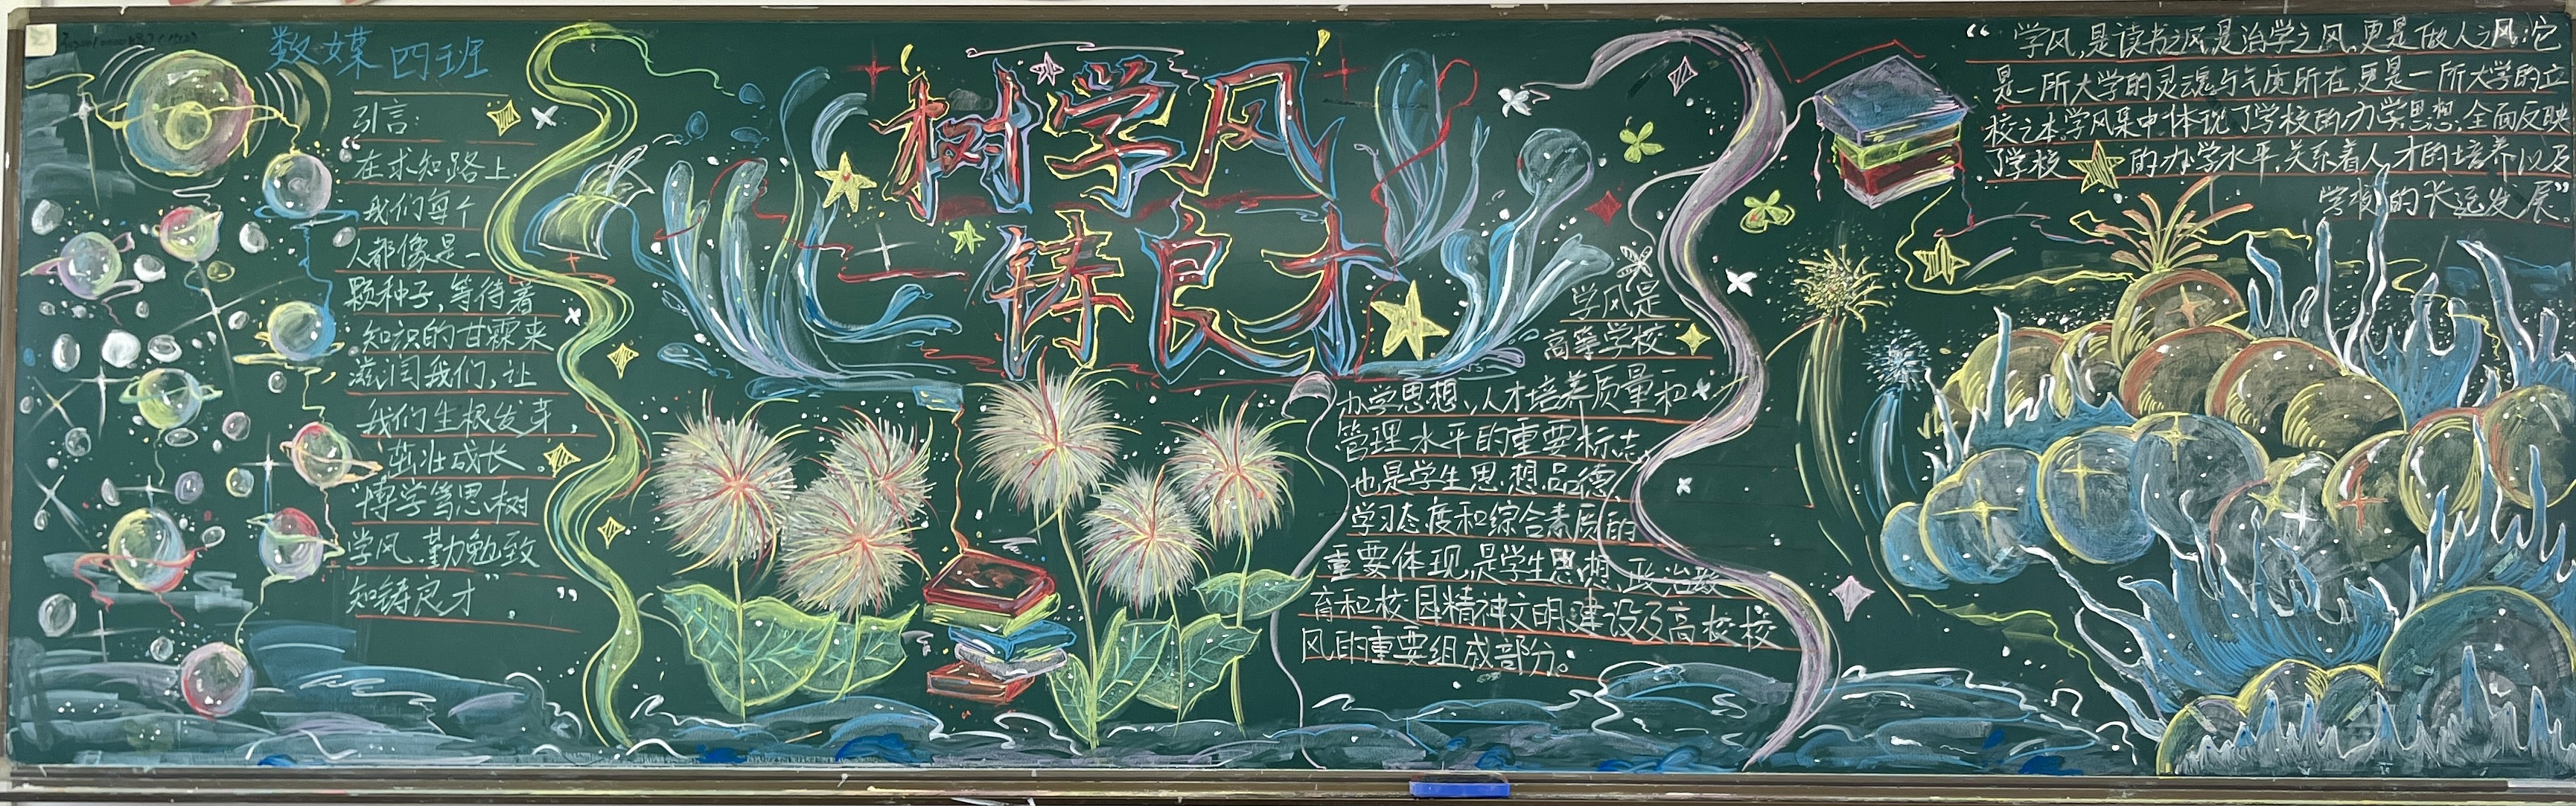 数媒四班
引言:
“在求知路上
我们每个
人都像是一
颗种子,等待着
知识的甘霖来
滋润我们,让
我们生根发芽,
茁壮成长。
“博学笃思树
学风 勤勉致
知铸良才””
树学风
铸良才
学风是
高等学校
办学思想、人才培养质量和
管理水平的重要标志,
也是学生思想品德、
学习态度和综合素质的
重要体现,是学生思想、政治教
育和校园精神文明建设及高校校
风的重要组成部分。
“学风,是读书之风,是治学之风,更是做人之风;它
是一所大学的灵魂与气质所在,更是一所大学的立
校之本,学风集中体现了学校的办学思想,全面反映
了学校的办学水平,关系着人才的培养以及
学校的长远发展”